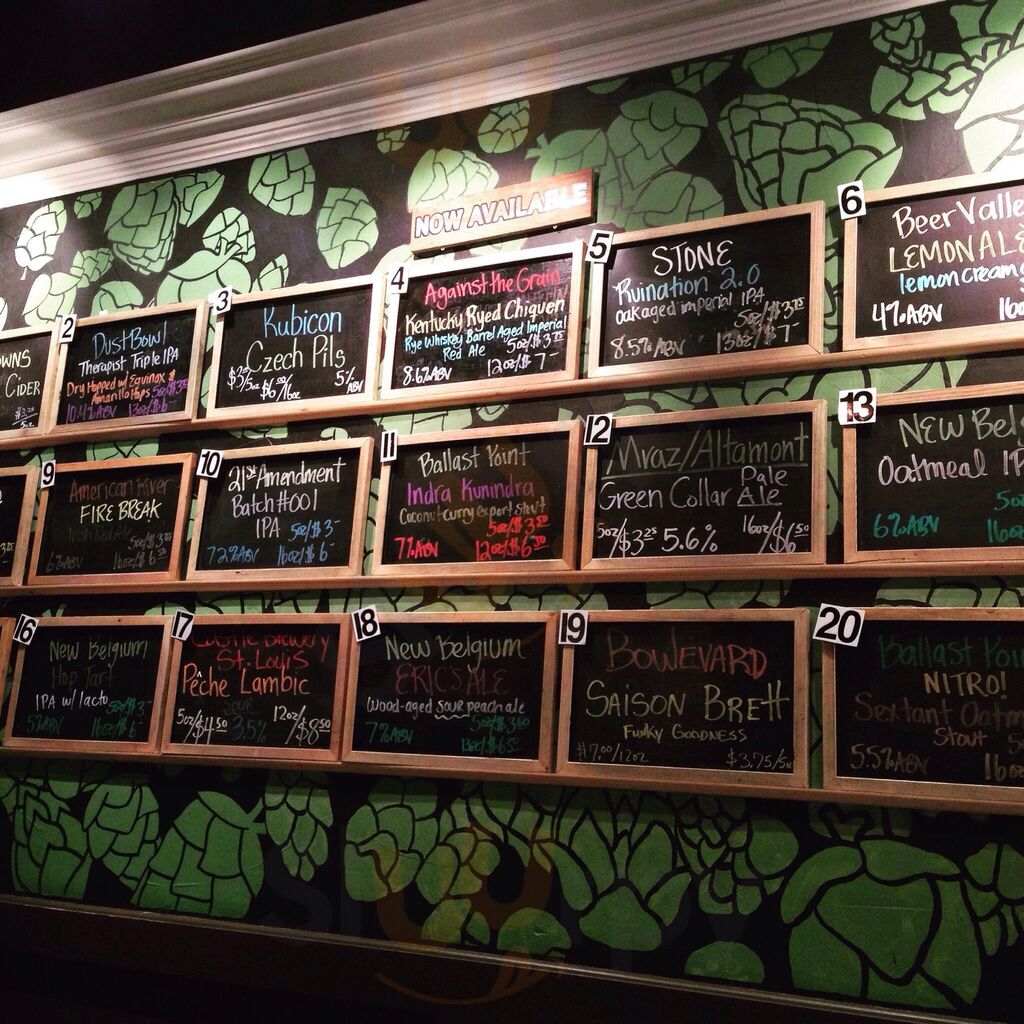 NOW AVAILABLE
WNS
CIDER
5oz
2
DustBowl
Therapist Triple IPA
Dry Hopped w/ Equinox &
Amarillo Hops 5oz/$3.75
10.4% ABV 13oz/$6
3
Kubicon
Czech Pils
$3/5oz $6.50/16oz 5% ABV
4
Against the Grain
Kentucky Ryed Chiquen
Rye Whiskey Barrel Aged Imperial
Red Ale 5oz/$3.75
8.6% ABV 12oz/$7-
5
STONE
Ruination 2.0
Oak aged imperial IPA
5oz/$3.75
8.5% ABV 13oz/$7-
6
Beer Valle
LEMONALE
lemon cream
4% ABV 16o
9
American River
FIRE BREAK
Irish Red Ale
10
21st Amendment
Batch #001
IPA 5oz/$3-
7.2% ABV 16oz/$6
11
Ballast Point
Indra Kunindra
Coconut curry export stout
5oz/$3.50
7% ABV 12oz/$6.50
12
Mraz/Altamont
Green Collar Pale Ale
5oz/$3.25 5.6% 16oz/$6.50
13
New Belg
Oatmeal IP
5oz
6% ABV 16oz
16
New Belgium
Hop Tart
IPA w/ lacto
5% ABV
17
Castle Brewery
St. Louis
Pêche Lambic
SOUR
5oz/$4.50 3.5% 12oz/$8.50
18
New Belgium
ERIC'S ALE
wood-aged sour peach ale
7% ABV
19
BOULEVARD
SAISON BRETT
FUNKY GOODNESS
$7.00/12oz $3.75/5oz
20
Ballast Poin
NITRO!
Sextant Oatm
Stout
5.5% ABV 16o